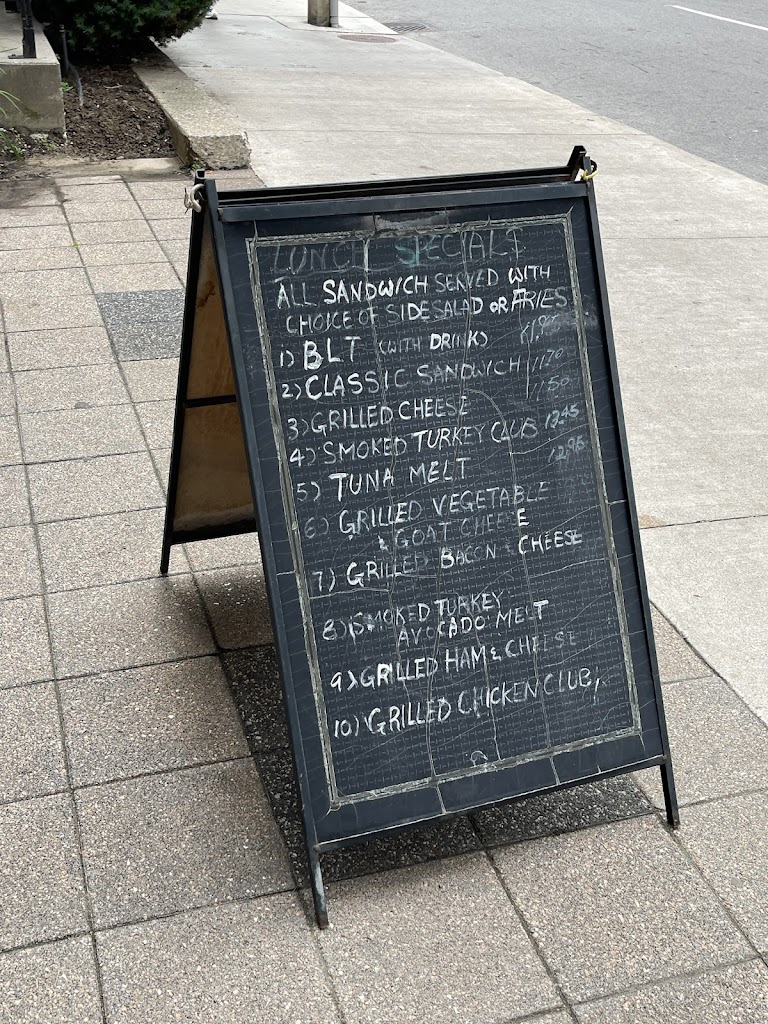 LUNCH SPECIALS
ALL SANDWICH SERVED WITH
CHOICE OF SIDE SALAD OR FRIES
1) BLT (WITH DRINK)
2) CLASSIC SANDWICH 1120
3) GRILLED CHEESE 1150
4) SMOKED TURKEY CLUB 12.45
5) TUNA MELT 12.95
6) GRILLED VEGETABLE
& GOAT CHEESE
7) GRILLED BACON & CHEESE
8) SMOKED TURKEY
AVOCADO MELT
9) GRILLED HAM & CHEESE
10) GRILLED CHICKEN CLUB,